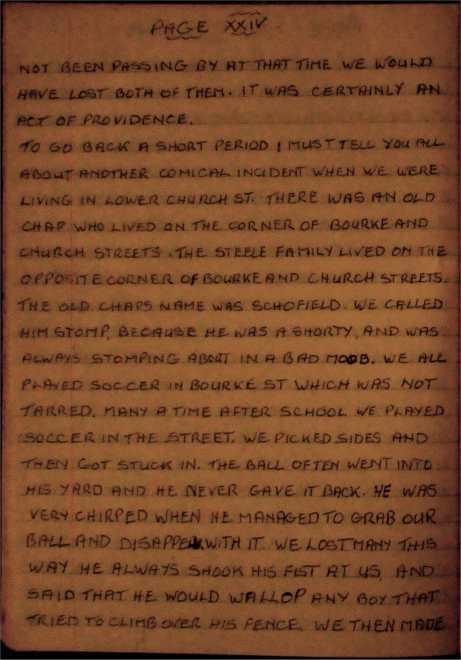 PAGE XXIV
NOT BEEN PASSING BY AT THAT TIME WE WOULD
HAVE LOST BOTH OF THEM. IT WAS CERTAINLY AN
ACT OF PROVIDENCE.
TO GO BACK A SHORT PERIOD I MUST TELL YOU ALL
ABOUT ANOTHER COMICAL INCIDENT WHEN WE WERE
LIVING IN LOWER CHURCH ST. THERE WAS AN OLD
CHAP WHO LIVED ON THE CORNER OF BOURKE AND
CHURCH STREETS. THE STEELE FAMILY LIVED ON THE
OPPOSITE CORNER OF BOURKE AND CHURCH STREETS.
THE OLD CHAPS NAME WAS SCHOFIELD. WE CALLED
HIM STOMP, BECAUSE HE WAS A SHORTY, AND WAS
ALWAYS STOMPING ABOUT IN A BAD MOOD. WE ALL
PLAYED SOCCER IN BOURKE ST WHICH WAS NOT
TARRED. MANY A TIME AFTER SCHOOL WE PLAYED
SOCCER IN THE STREET. WE PICKED SIDES AND
THEN GOT STUCK IN. THE BALL OFTEN WENT INTO
HIS YARD AND HE NEVER GAVE IT BACK. HE WAS
VERY CHIRPED WHEN HE MANAGED TO GRAB OUR
BALL AND DISAPPER WITH IT. WE LOST MANY THIS
WAY. HE ALWAYS SHOOK HIS FIST AT US, AND
SAID THAT HE WOULD WALLOP ANY BOY THAT
TRIED TO CLIMB OVER HIS FENCE. WE THEN MADE